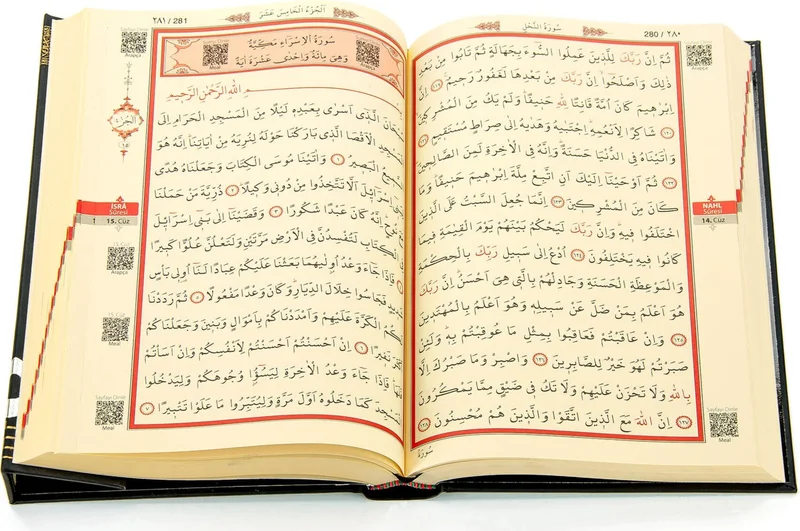 سُورَةُ النَّحْلِ
280 / ٢٨٠
ثُمَّ اِنَّ رَبَّكَ لِلَّذٖينَ عَمِلُوا السُّٓوءَ بِجَهَالَةٍ ثُمَّ تَابُوا مِنْ بَعْدِ
ذٰلِكَ وَاَصْلَحُٓوا اِنَّ رَبَّكَ مِنْ بَعْدِهَا لَغَفُورٌ رَحٖيمٌ ١١٩ اِنَّ
اِبْرٰهٖيمَ كَانَ اُمَّةً قَانِتًا لِلّٰهِ حَنٖيفًا وَلَمْ يَكُ مِنَ الْمُشْرِكٖينَ
١٢٠ شَاكِرًا لِاَنْعُمِهٖ اِجْتَبٰيهُ وَهَدٰيهُ اِلٰى صِرَاطٍ مُسْتَقٖيمٍ ١٢١
وَاٰتَيْنَاهُ فِي الدُّنْيَا حَسَنَةً وَاِنَّهُ فِي الْاٰخِرَةِ لَمِنَ الصَّالِحٖينَ
١٢٢ ثُمَّ اَوْحَيْنَٓا اِلَيْكَ اَنِ اتَّبِعْ مِلَّةَ اِبْرٰهٖيمَ حَنٖيفًا وَمَا
كَانَ مِنَ الْمُشْرِكٖينَ ١٢٣ اِنَّمَا جُعِلَ السَّبْتُ عَلَى الَّذٖينَ
اخْتَلَفُوا فٖيهِ وَاِنَّ رَبَّكَ لَيَحْكُمُ بَيْنَهُمْ يَوْمَ الْقِيٰمَةِ فٖيمَا
كَانُوا فٖيهِ يَخْتَلِفُونَ ١٢٤ اُدْعُ اِلٰى سَبٖيلِ رَبِّكَ بِالْحِكْمَةِ
وَالْمَوْعِظَةِ الْحَسَنَةِ وَجَادِلْهُمْ بِالَّتٖي هِيَ اَحْسَنُ اِنَّ رَبَّكَ
هُوَ اَعْلَمُ بِمَنْ ضَلَّ عَنْ سَبٖيلِهٖ وَهُوَ اَعْلَمُ بِالْمُهْتَدٖينَ
١٢٥ وَاِنْ عَاقَبْتُمْ فَعَاقِبُوا بِمِثْلِ مَا عُوقِبْتُمْ بِهٖ وَلَئِنْ
صَبَرْتُمْ لَهُوَ خَيْرٌ لِلصَّابِرٖينَ ١٢٦ وَاصْبِرْ وَمَا صَبْرُكَ اِلَّا
بِاللّٰهِ وَلَا تَحْزَنْ عَلَيْهِمْ وَلَا تَكُ فٖي ضَيْقٍ مِمَّا يَمْكُرُونَ
١٢٧ اِنَّ اللّٰهَ مَعَ الَّذٖينَ اتَّقَوْا وَالَّذٖينَ هُمْ مُحْسِنُونَ ١٢٨
سُورَةُ
Arapça
NAHL
Sûresi
14. Cüz
Meal
اَلْجُزْءُ الْخَامِسَ عَشَرَ
٢٨١ / 281
سُورَةُ الْاِسْرَاءِ مَكِّيَّةٌ
وَهِيَ مِائَةٌ وَاِحْدٰى عَشْرَةَ اٰيَةً
Meal
Arapça
اللّٰهِ الرَّحْمٰنِ الرَّحٖيمِ
الَّذٖٓي اَسْرٰى بِعَبْدِهٖ لَيْلًا مِنَ الْمَسْجِدِ الْحَرَامِ اِلَى
الْاَقْصَا الَّذٖي بَارَكْنَا حَوْلَهُ لِنُرِيَهُ مِنْ اٰيَاتِنَا اِنَّهُ هُوَ
الْبَصٖيرُ ١ وَاٰتَيْنَا مُوسَى الْكِتَابَ وَجَعَلْنَاهُ هُدًى
اِسْرَٓائٖلَ اَلَّا تَتَّخِذُوا مِنْ دُونٖي وَكٖيلًا ٢ ذُرِّيَّةَ مَنْ حَمَلْنَا
نُوحٍ اِنَّهُ كَانَ عَبْدًا شَكُورًا ٣ وَقَضَيْنَٓا اِلٰى بَنٖٓي اِسْرَٓائٖلَ
الْكِتَابِ لَتُفْسِدُنَّ فِي الْاَرْضِ مَرَّتَيْنِ وَلَتَعْلُنَّ عُلُوًّا كَبٖيرًا
فَاِذَا جَٓاءَ وَعْدُ اُو۫لٰيهُمَا بَعَثْنَا عَلَيْكُمْ عِبَادًا لَنَٓا اُو۬لٖي بَأْسٍ
فَجَاسُوا خِلَالَ الدِّيَارِ وَكَانَ وَعْدًا مَفْعُولًا ٥ ثُمَّ رَدَدْنَا
الْكَرَّةَ عَلَيْهِمْ وَاَمْدَدْنَاكُمْ بِاَمْوَالٍ وَبَنٖينَ وَجَعَلْنَاكُمْ
نَفٖيرًا ٦ اِنْ اَحْسَنْتُمْ اَحْسَنْتُمْ لِاَنْفُسِكُمْ وَاِنْ اَسَأْتُمْ
فَاِذَا جَٓاءَ وَعْدُ الْاٰخِرَةِ لِيَسُٓوؤُ۫ا وُجُوهَكُمْ وَلِيَدْخُلُوا
كَمَا دَخَلُوهُ اَوَّلَ مَرَّةٍ وَلِيُتَبِّرُوا مَا عَلَوْا تَتْبٖيرًا ٧
Arapça
اَلْجُزْءُ
١٥
İSRÂ
Sûresi
1
15. Cüz
15. Cüz
Arapça
15. Cüz
Meal
Sayfayı Dinle
Meal